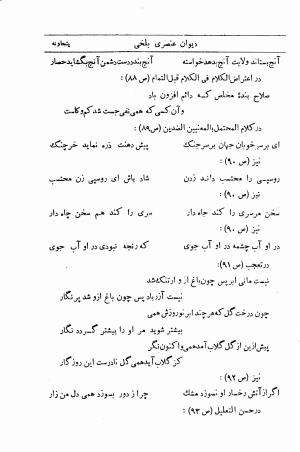 دیوان عنصری بلخی پنجاونه
آنچ بستاند ولایت آنچ بدهد خواسته آنچ بندد دست دشمن آنچ بگشاید حصار
در اعتراض الکلام فی الکلام قبل التمام (ص ۸۸) :
صلاح بندهٔ مخلص که دائم افزون باد
و آن کسی که همی نفی جست شد کم و کاست
در کلام المحتمل بالمعنیین الضدین (ص ۸۹) :
ای بر سر خوبان جهان بر سرجنگ پیش دهنت ذره نماید خرچنگ
نیز (ص ۹۰) :
روسپی را محتسب داند زدن شاد باش ای روسپی زن محتسب
نیز (ص ۹۰) :
سخن مر سری را کند جاه دار سری را کند هم سخن چاه دار
نیز (ص ۹۰) :
در او آب چشمه در او آب جوی که رنجه نبودی در او آب جوی
در تعجب (ص ۹۱) :
نیست مانی ابر پس چون باغ از و ارتنگ شد
نیست آزر باد پس چون باغ ازو شد پر نگار
چون درخت گل که هر چند ابر نوروزش همی
بیشتر شوید مر او را بیشتر گردد نگار
پیش ازین از گل گلاب آمد همی و اکنون نگر
کز گلاب آید همی گل نادرست این روزگار
نیز (ص ۹۲) :
اگر از آتش رخسار او نسوزد مشك چرا ز دور بسوزد همی دل من زار
در حسن التعلیل (ص ۹۳) :